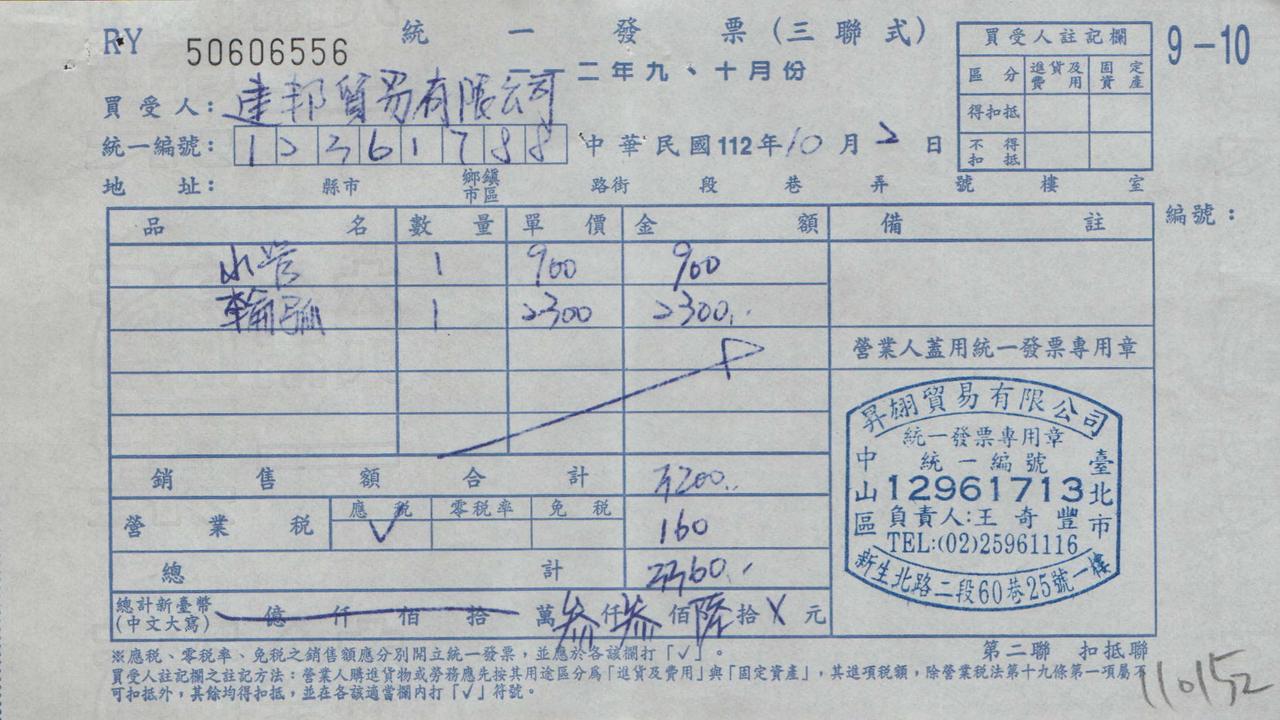 RY 50606556
統一發票(三聯式)
一一二年九、十月份
9-10
買受人註記欄
區分 進貨及費用 固定資產
得扣抵
不得扣抵
買受人:建邦貿易有限公司
統一編號:12361788 中華民國112年10月2日
地址: 縣市 鄉鎮市區 路街 段 巷 弄 號 樓 室
編號:
品名 數量 單價 金額 備註
水管 1 900 900
輪弧 1 2300 2300
營業人蓋用統一發票專用章
銷售額合計 3200
應稅 零稅率 免稅
營業稅 √ 160
總計 3360
總計新臺幣(中文大寫) 億仟佰拾萬参仟参佰陸拾X元
昇翃貿易有限公司
統一發票專用章
統一編號
12961713
臺北市
中山區
負責人:王奇豐
TEL:(02)25961116
新生北路二段60巷25號一樓
第二聯 扣抵聯
※應稅、零稅率、免稅之銷售額應分別開立統一發票,並應於各該欄打「√」。
買受人註記欄之註記方法:營業人購進貨物或勞務應先按其用途區分為「進貨及費用」與「固定資產」,其進項稅額,除營業稅法第十九條第一項屬不
可扣抵外,其餘均得扣抵,並在各該適當欄內打「√」符號。
110152